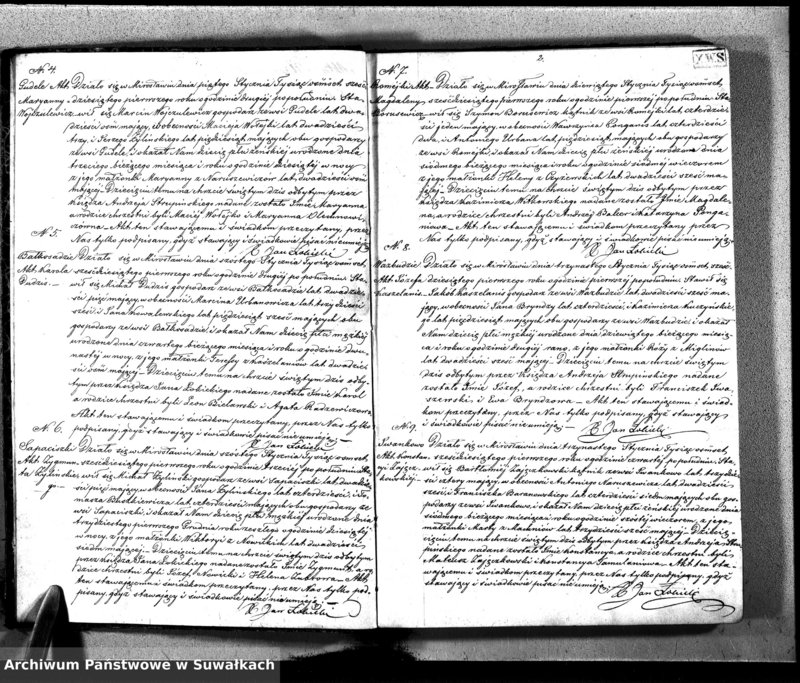 No 4.
Gudele Akt Działo się w Mirosławiu dnia piątego Stycznia Tysiąc ośmset sześć
Maryanny dziesiątego pierwszego roku o godzinie drugiej po południu Sta
Wojczulewicz wił się Marcin Wojczulewicz gospodarz ze wsi Gudele lat dwa
dzieścia ośm mający, w obecności Macieja Wołejki lat dwadzieścia
trzy, i Jerzego Żylińskiego lat pięćdziesiąt mających obu gospodarzy
ze wsi Gudele, i okazał Nam dziecię płci żeńskiej urodzone dnia
trzeciego bieżącego miesiąca i roku o godzinie dziesiątej w nocy,
z jego małżonki Maryanny z Naruszewiczów lat dwadzieścia ośm
mającej. Dziecięciu temu na chrzcie świętym dziś odbytym przez
Księdza Andrzeja Strupińskiego nadane zostało Imie Maryanna
a rodzice chrzestni byli Maciej Wołejko i Maryanna
Akt ten stawającemu i świadkom przeczytany, przez
Nas tylko podpisany, gdyż stawający i świadkowie pisać nieumieją
X Jan Łobicki
No 5.
Bałkosadzie Działo się w Mirosławiu dnia szóstego Stycznia Tysiąc ośmset
Akt. Karola sześćdziesiątego pierwszego roku o godzinie drugiej po południu Sta
Dudzis. wił się Michał Dudzis gospodarz ze wsi Bałkosadzie lat dwadzieścia
pięć mający w obecności Marcina Urbanowicza lat trzydzieści
sześć i Jana Kowalewskiego lat pięćdziesiąt mających obu
gospodarzy ze wsi Bałkosadzie, i okazał Nam dziecię płci męzkiej
urodzone dnia czwartego bieżącego miesiąca i roku o godzinie dwu
nastej w nocy, z jego małżonki Teressy z lat dwadzieścia
ośm mającej. Dziecięciu temu na chrzcie świętym dziś odby
tym przez Księdza Jana Łobickiego nadane zostało Imie Karol
a rodzice chrzestni byli Leon Bielawski i Agata
Akt ten stawającemu i świadkom przeczytany, przez Nas tylko
podpisany, gdyż stawający i świadkowie pisać nieumieją
X Jan Łobicki
No 6.
Sapaciszki Działo się w Mirosławiu dnia szóstego Stycznia Tysiąc ośmset
Akt Zygmun sześćdziesiątego pierwszego roku o godzinie trzeciej po południu Sta
ta Żylińskie wił się Michał Żyliński gospodarz ze wsi Sapaciszki lat dwadzie
go ścia pięć mający w obecności Jana Żylińskiego lat czterdzieści i To
masza lat czterdzieści mających obu gospodarzy ze
wsi Sapaciszki, i okazał Nam dziecię płci męzkiej urodzone dnia
trzydziestego pierwszego Grudnia roku zeszłego o godzinie dziesiątej
w nocy, z jego małżonki Wiktoryi z Nowickich lat dwadzieścia
siedm mającej. Dziecięciu temu na chrzcie świętym dziś odbytym
przez Księdza Jana Łobickiego nadane zostało Imie Zygmunt, a ro
dzice chrzestni byli Józef Nowicki i Helena Akt
ten stawającemu i świadkom przeczytany, przez Nas tylko pod
pisany, gdyż stawający i świadkowie pisać nieumieją
X Jan Łobicki
2.
No 7.
Romejki Akt Działo się w Mirosławiu dnia dziewiątego Stycznia Tysiąc ośmset
Magdaleny sześćdziesiątego pierwszego roku o godzinie pierwszej po południu Sta
Borusewicz wił się Szymon Borusewicz kątnik ze wsi Romejki lat czterdzie
ści jeden mający, w obecności Wawrzyńca Pangana lat czterdzieści
dwa, i Antoniego Urbana lat pięćdziesiąt mających obu gospodarzy
ze wsi Romejki, i okazał Nam dziecię płci żeńskiej urodzone dnia
siódmego bieżącego miesiąca i roku o godzinie siódmej wieczorem
z jego małżonki Heleny z lat dwadzieścia sześć ma
jącej. Dziecięciu temu na chrzcie świętym dziś odbytym przez
Księdza Kazimierza Witkowskiego nadane zostało Imie Magdale
na, a rodzice chrzestni byli Andrzej i Katarzyna Panga
nowa. Akt ten stawającemu i świadkom przeczytany przez
Nas tylko podpisany, gdyż stawający i świadkowie pisać nieumieją
X Jan Łobicki
No 8.
Warbudzie Działo się w Mirosławiu dnia trzynastego Stycznia Tysiąc ośmset, sześć
Akt Józefa dziesiątego pierwszego roku o godzinie pierwszej po południu, Stawił się
Kaszelania Jakób gospodarz ze wsi Warbudzie lat dwadzieścia sześć ma
jący, w obecności Jana Bryndzy lat czterdzieści, i Kazimierza Kuczyńskie
go lat pięćdziesiąt mających obu gospodarzy ze wsi Warbudzie i okazał
Nam dziecię płci męzkiej urodzone dnia dziewiątego bieżącego miesią
ca i roku o godzinie drugiej rano, z jego małżonki Róży z Miglinów
lat dwadzieścia sześć mającej. Dziecięciu temu na chrzcie świętym
dziś odbytym przez Księdza Andrzeja Strupińskiego nadane
zostało Imie Józef, a rodzice chrzestni byli Franciszek
i Ewa Bryndzowa. Akt ten stawającemu i świad
kom przeczytany, przez Nas tylko podpisany, gdyż stawający
i świadkowie pisać nieumieją.
X Jan Łobicki
No 9.
Iwankow Działo się w Mirosławiu dnia trzynastego Stycznia Tysiąc ośmset,
Akt Konstan sześćdziesiątego pierwszego roku o godzinie czwartej po południu, Sta
cyi Zającz wił się Bartłomiej Zajączkowski kątnik ze wsi Iwankow lat trzydzie
kowskiej ści cztery mający, w obecności Antoniego Naruszewicza lat dwadzieścia
sześć i Franciszka Baranowskiego lat czterdzieści siedm mających obu gos
podarzy ze wsi Iwankowa, i okazał Nam dziecię płci żeńskiej urodzone dnia
siódmego bieżącego miesiąca i roku o godzinie szóstej wieczorem, z jego
małżonki Marty z lat trzydzieści sześć mającej. Dziecię
ciu temu na chrzcie świętym dziś odbytym przez Księdza Andrzeja Stru
pińskiego nadane zostało Imie Konstancya a rodzice chrzestni byli
Mateusz Zajączkowski i Konstancya Akt ten sta
wającemu i świadkom przeczytany przez Nas tylko podpisany, gdyż
stawający i świadkowie pisać nieumieją.
X Jan Łobicki
Archiwum Państwowe w Suwałkach